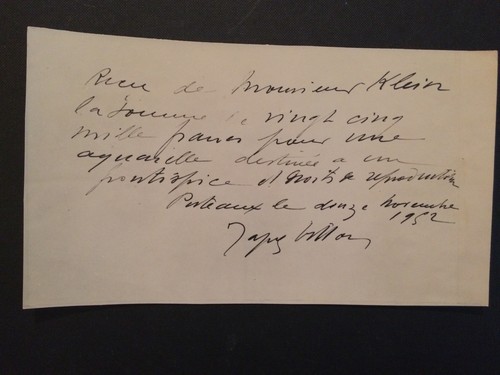 Recu de Monsieur Klein
la somme de vingt cinq
mille francs pour une
aquarelle destinée a un
frontispice et droits de reproduction
Puteaux le douze novembre
1952
Jacques Villon